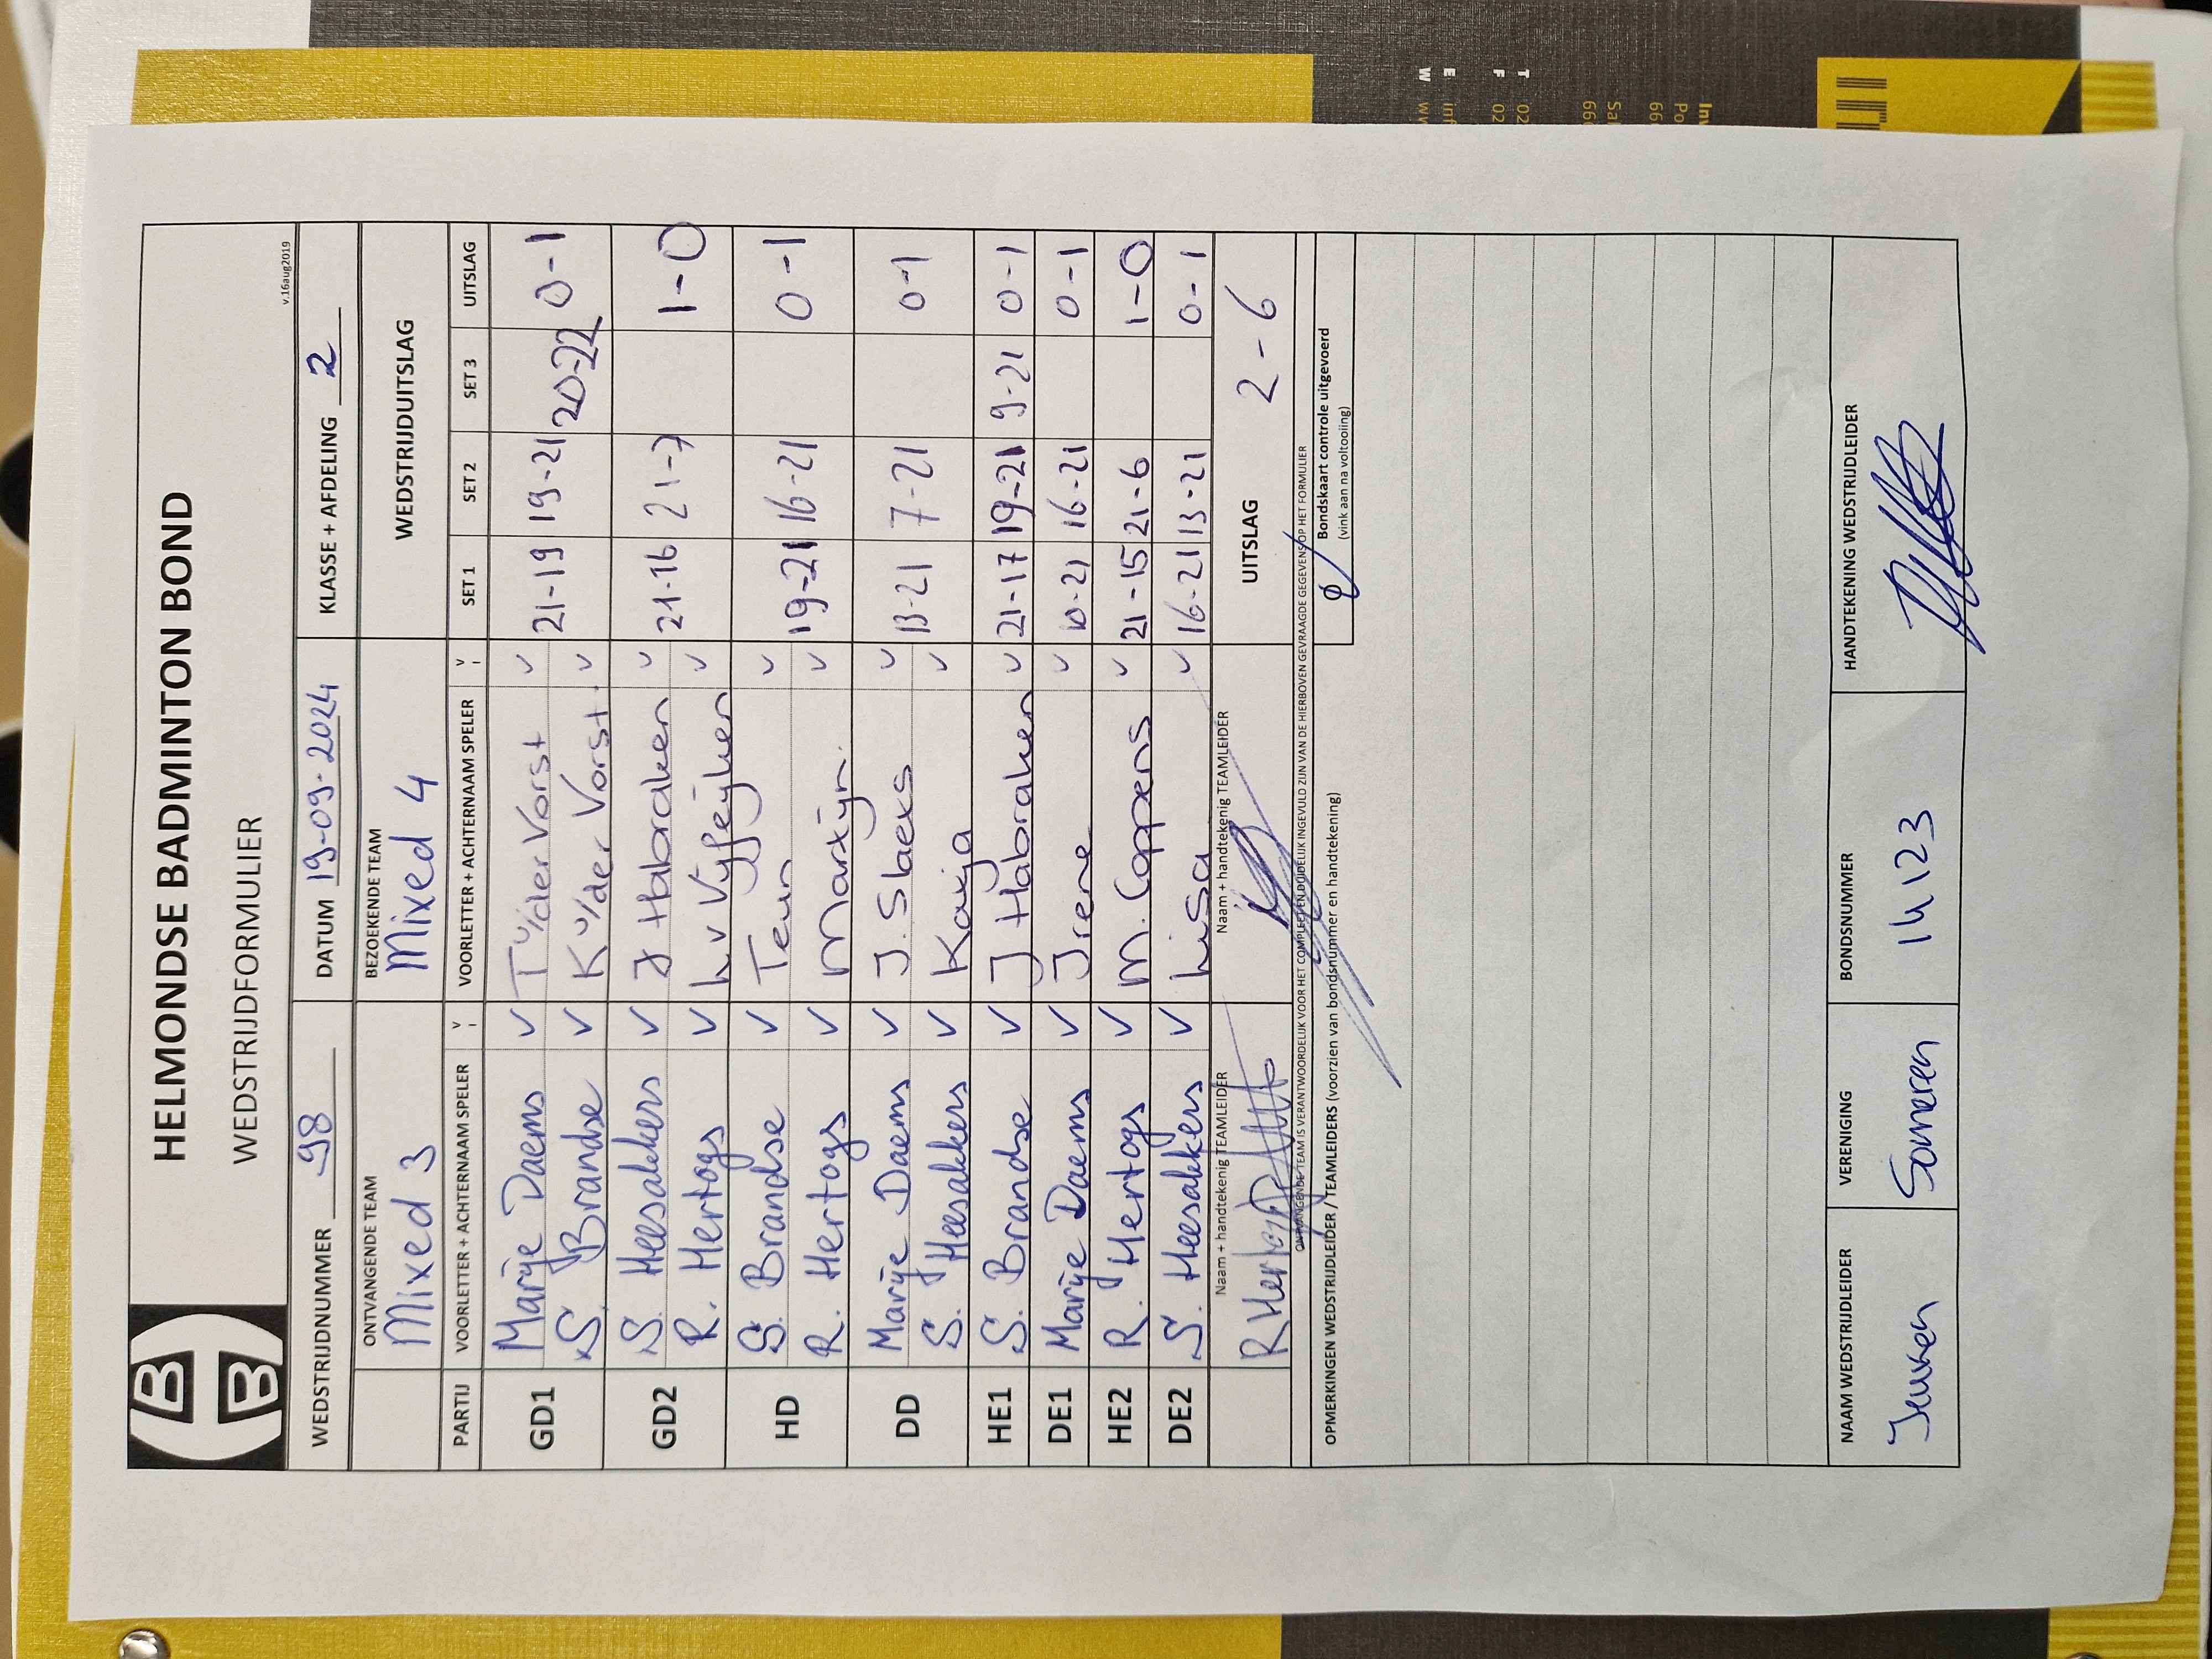 HELMONDSE BADMINTON BOND
WEDSTRIJDFORMULIER
v.16aug2019
WEDSTRIJDNUMMER 98 DATUM 19-09-2024 KLASSE + AFDELING 2
ONTVANGENDE TEAM BEZOEKENDE TEAM WEDSTRIJDUITSLAG
Mixed 3 Mixed 4
PARTIJ VOORLETTER + ACHTERNAAM SPELER V VOORLETTER + ACHTERNAAM SPELER V SET 1 SET 2 SET 3 UITSLAG
GD1 Marije Daems ✓ T v/der Vorst ✓ 21-19 19-21 20-22 0-1
S. Brandse ✓ K v/der Vorst ✓
GD2 S. Heesakkers ✓ J Habraken ✓ 21-16 21-7 1-0
R. Hertogs ✓ L v Vijfeijken ✓
HD S. Brandse ✓ Teun ✓ 19-21 16-21 0-1
R. Hertogs ✓ Martijn. ✓
DD Marije Daems ✓ J. Slaets ✓ 13-21 7-21 0-1
S. Heesakkers ✓ Katja ✓
HE1 S. Brandse ✓ J Habraken ✓ 21-17 19-21 9-21 0-1
DE1 Marije Daems ✓ Irene ✓ 10-21 16-21 0-1
HE2 R. Hertogs ✓ M. Coppens ✓ 21-15 21-6 1-0
DE2 S. Heesakkers ✓ Lisa ✓ 16-21 13-21 0-1
Naam + handtekenig TEAMLEIDER Naam + handtekenig TEAMLEIDER UITSLAG 2-6
R Hertogs
ONTVANGENDE TEAM IS VERANTWOORDELIJK VOOR HET COMPLEET EN DUIDELIJK INGEVULD ZIJN VAN DE HIERBOVEN GEVRAAGDE GEGEVENS OP HET FORMULIER
OPMERKINGEN WEDSTRIJDLEIDER / TEAMLEIDERS (voorzien van bondsnummer en handtekening) Bondskaart controle uitgevoerd
(vink aan na voltooiing)
NAAM WEDSTRIJDLEIDER VERENIGING BONDSNUMMER HANDTEKENING WEDSTRIJDLEIDER
Someren 14123